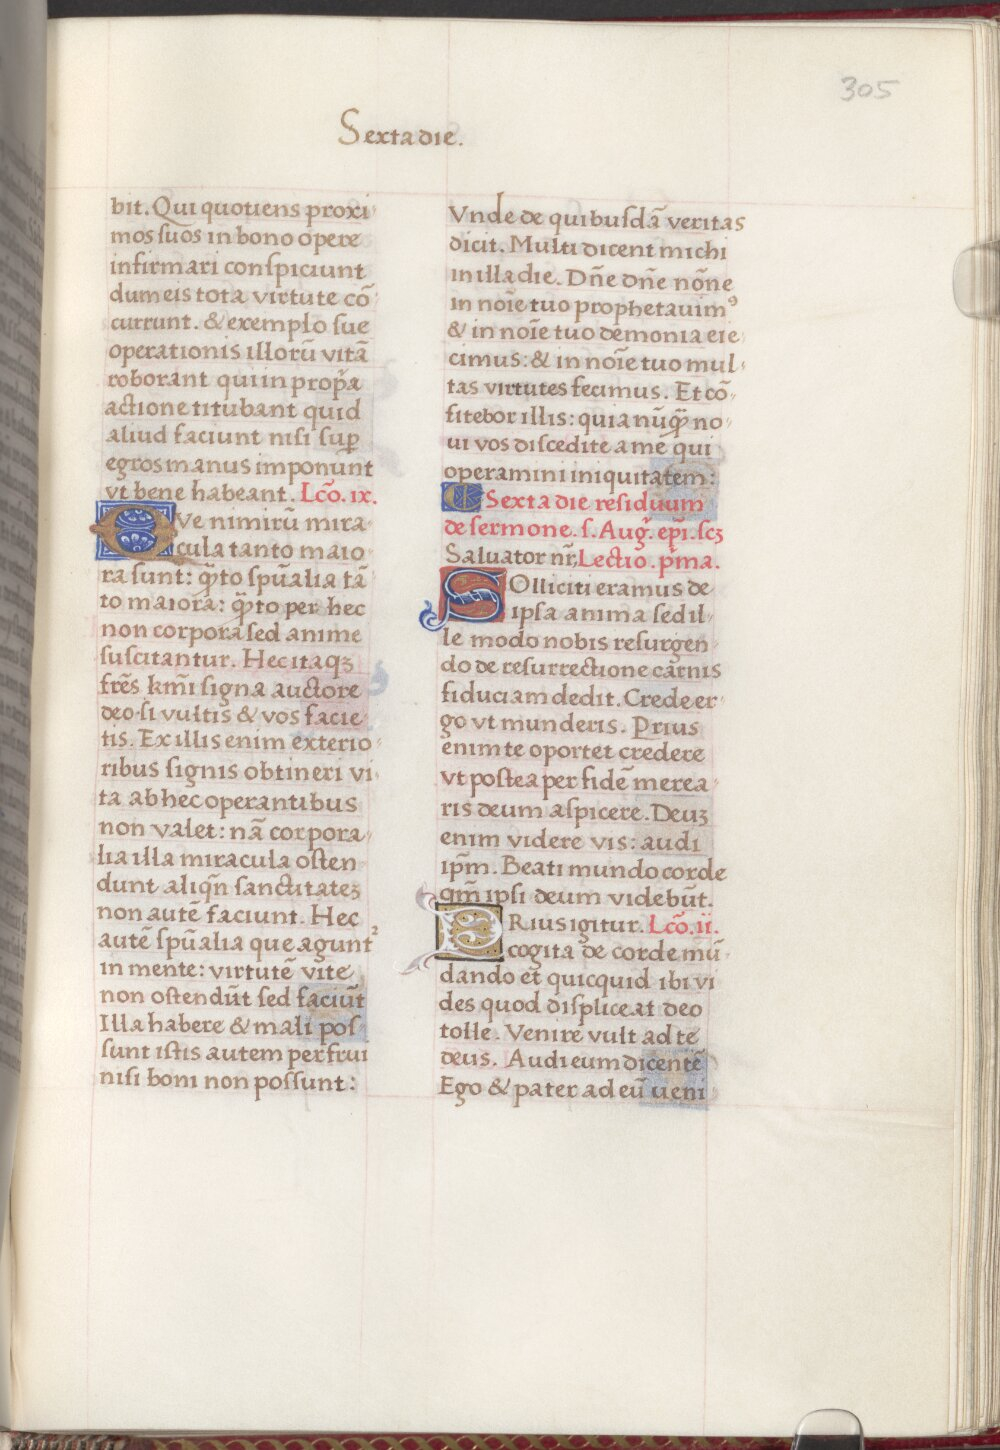 305
Sexta die.
bit. Qui quotiens proxi
mos suos in bono opere
infirmari conspiciunt
dum eis tota virtute cō
currunt. & exemplo sue
operationis illorū vitā
roborant qui in prop̄a
actione titubant quid
aliud faciunt nisi sup̄
egros manus imponunt
vt bene habeant. Lc̄o. ix.
QVe nimirū mira
cula tanto maio
ra sunt: q̄to sp̄ualia tā
to maiora: q̄to per hec
non corpora sed anime
suscitantur. Hec itaqꝫ
fr̄es km̄i signa auctore
deo si vultis & vos facie
tis. Ex illis enim exterio
ribus signis obtineri vi
ta ab hec operantibus
non valet: nā corpora
lia illa miracula osten
dunt aliqn̄ sanctitateꝫ
non autē faciunt. Hec
autē sp̄ualia que agunt²
in mente: virtutē vite
non ostendūt sed faciūt
Illa habere & mali pos
sunt istis autem perfrui
nisi boni non possunt:
Vnde de quibusdā veritas
dicit. Multi dicent michi
in illa die. Dn̄e dn̄e nōne
in noīe tuo prophetauim⁹
& in noīe tuo demonia eie
cimus: & in noīe tuo mul
tas virtutes fecimus. Et cō
fitebor illis: quia nūq̄ no
ui vos discedite a me qui
operamini iniquitatem:
Sexta die residuum
de sermone. s. Auḡ. ep̄i. scꝫ
Saluator nr̄, Lectio. p̄ma.
SOlliciti eramus de
ipsa anima sed il
le modo nobis resurgen
do de resurrectione carnis
fiduciam dedit. Crede er
go vt munderis. Prius
enim te oportet credere
vt postea per fidē merea
ris deum aspicere. Deuꝫ
enim videre vis: audi
ip̄m. Beati mundo corde
qm̄ ipsi deum videbūt.
PRius igitur. Lc̄o. ii.
cogita de corde mū
dando et quicquid ibi vi
des quod displiceat deo
tolle. Venire vult ad te
deus. Audi eum dicentē
Ego & pater ad eū ueni